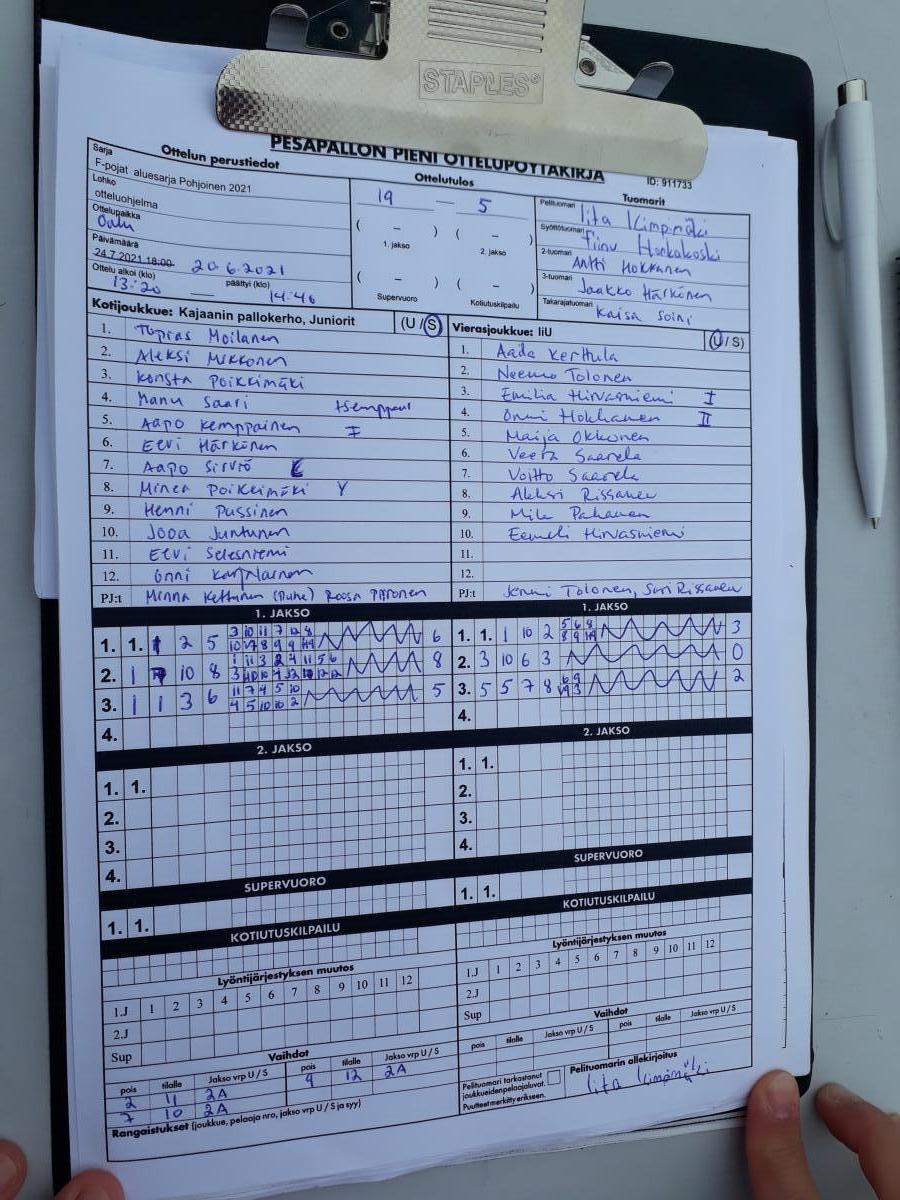 STAPLES®
PESÄPALLON PIENI OTTELUPÖYTÄKIRJA
Ottelun perustiedot
Ottelutulos
ID: 911733
Sarja
F-pojat aluesarja Pohjoinen 2021
Lohko
otteluohjelma
Ottelupaikka
Oulu
Päivämäärä
24.7.2021 18:00 20.6.2021
Ottelu alkoi (klo) päättyi (klo)
13:20 — 14:46
19 — 5
( – ) ( – )
1. jakso 2. jakso
( – ) ( – )
Supervuoro Kotiutuskilpailu
Tuomarit
Pelituomari Iita Kimpimäki
Syöttötuomari Tiinu Honkakoski
2-tuomari Antti Hokkanen
3-tuomari Jaakko Härkönen
Takarajatuomari Kaisa Soini
Kotijoukkue: Kajaanin pallokerho, Juniorit (U / S)
1. Topias Moilanen
2. Aleksi Mikkonen
3. Konsta Poikkimäki
4. Manu Saari
5. Aapo Kemppainen I
6. Eevi Härkönen
7. Aapo Sirviö
8. Minea Poikkimäki Y
9. Henni Pussinen
10. Jooa Juntunen
11. Eevi Selesniemi
12. Onni Karjalainen
PJ:t Minna Kettunen Roosa Piironen
Vierasjoukkue: IiU (U / S)
1. Aada Kerttula
2. Neemo Tolonen
3. Emilia Hirvasniemi I
4. Onni Hokkanen II
5. Maija Okkonen
6. Veera Saarela
7. Voitto Saarela
8. Aleksi Rissanen
9. Mila Pahanen
10. Eemeli Hirvasniemi
11.
12.
PJ:t Jenni Tolonen, Suri Rissanen
1. JAKSO
1. 1. 1 2 5 6
2. 1 10 8 8
3. 1 1 3 6 5
4.
1. JAKSO
1. 1. 1 10 2 3
2. 3 10 6 3 0
3. 5 5 7 8 2
4.
2. JAKSO
1. 1.
2.
3.
4.
2. JAKSO
1. 1.
2.
3.
4.
SUPERVUORO
1. 1.
SUPERVUORO
1. 1.
KOTIUTUSKILPAILU
KOTIUTUSKILPAILU
Lyöntijärjestyksen muutos
1.J 1 2 3 4 5 6 7 8 9 10 11 12
2.J
Sup
Lyöntijärjestyksen muutos
1.J 1 2 3 4 5 6 7 8 9 10 11 12
2.J
Sup
Vaihdot
pois tilalle Jakso vrp U / S pois tilalle Jakso vrp U / S
2 11 2A 9 12 2A
7 10 2A
Vaihdot
pois tilalle Jakso vrp U / S pois tilalle Jakso vrp U / S
Rangaistukset (joukkue, pelaaja nro, jakso vrp U / S ja syy)
Pelituomari tarkastanut
joukkueidenpelaajaluvat.
Puutteet merkitty erikseen.
Pelituomarin allekirjoitus
Iita Kimpimäki